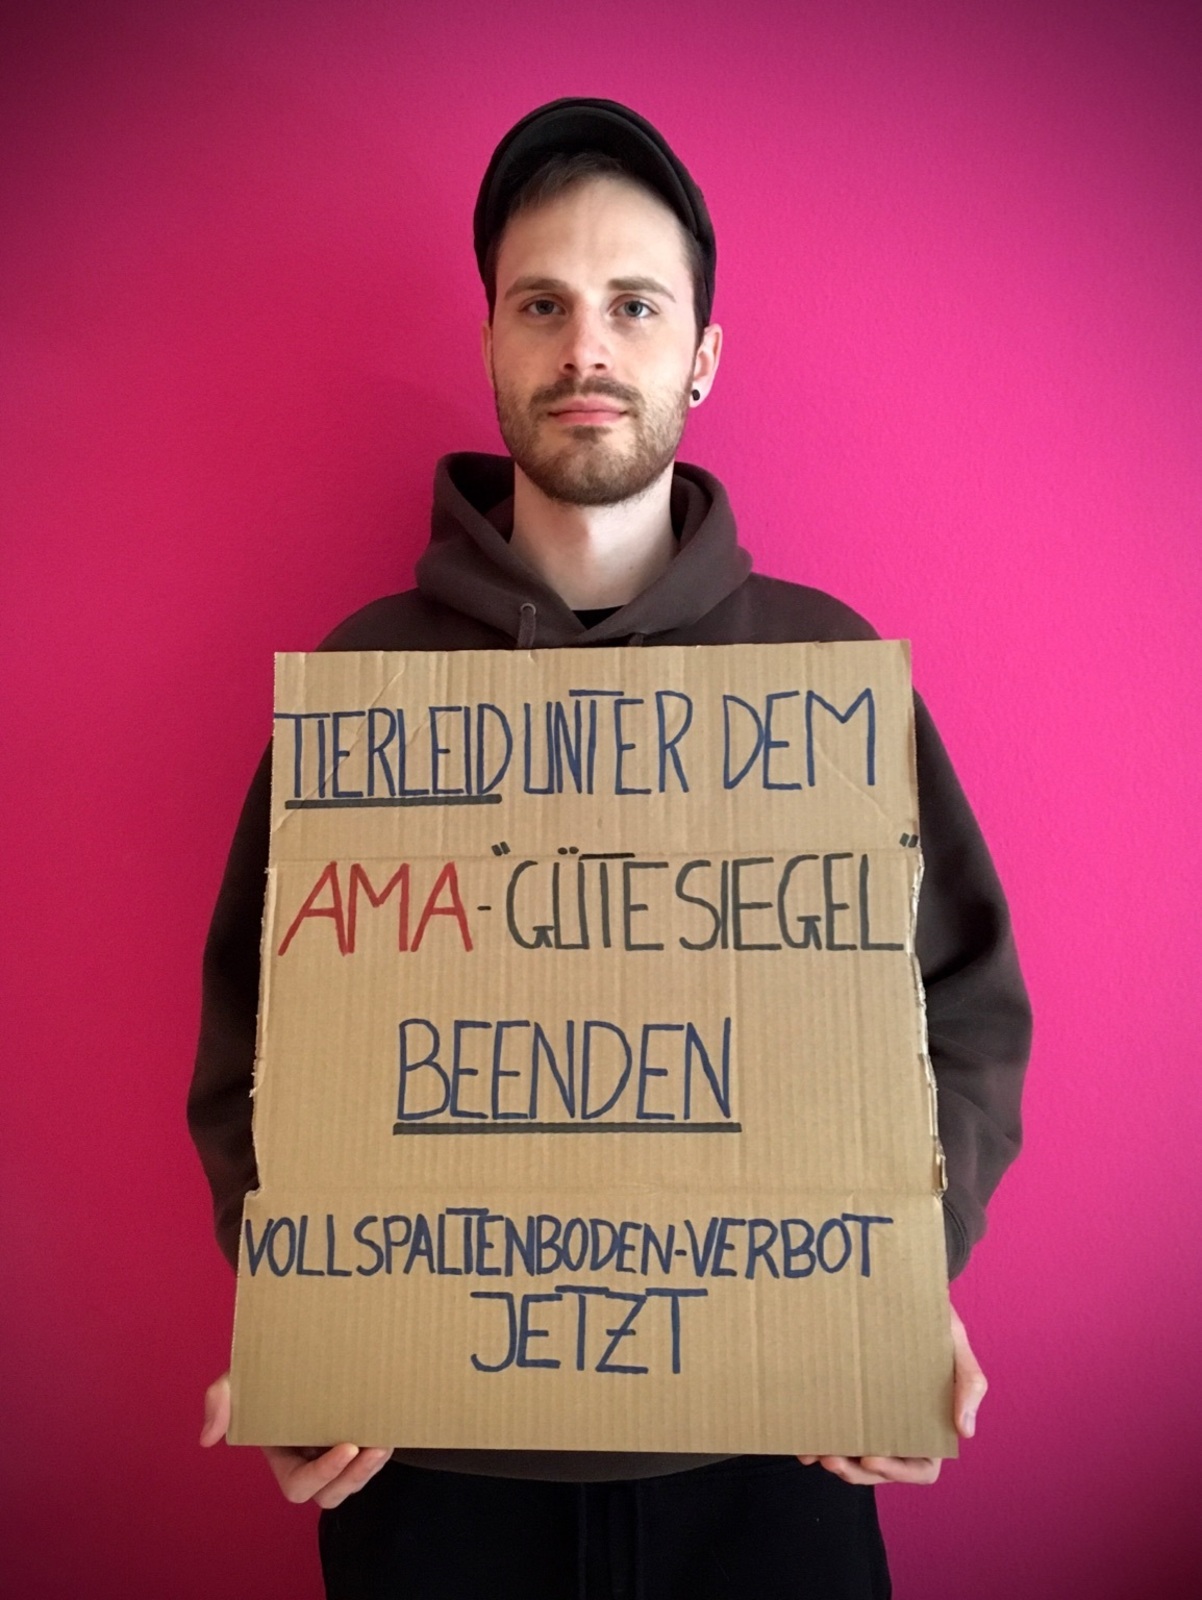 TIERLEID UNTER DEM
AMA-"GÜTESIEGEL"
BEENDEN
VOLLSPALTENBODEN-VERBOT
JETZT